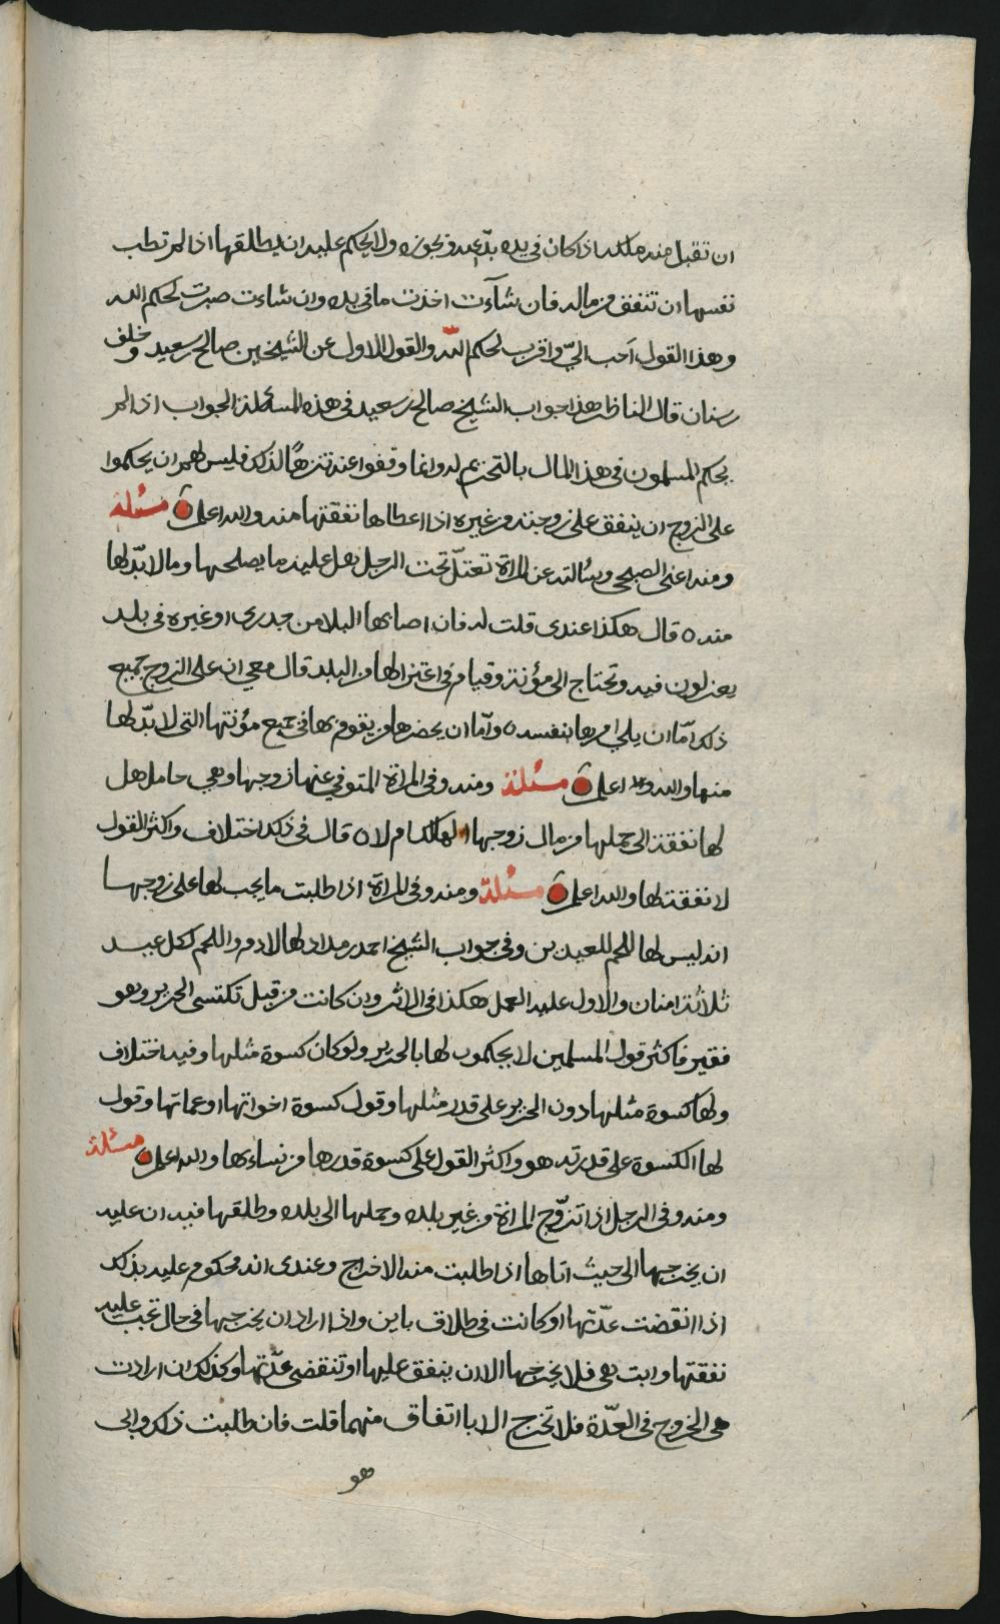 ان تقبل منه ملكه اذا كان في يده يدّعيه ويحوزه ولا يحكم عليه ان يطلقها اذا لم تطب
نفسها ان تنفق من ماله فان شآءت اخذت ما في يده وان شاءت صبرت لحكم الله
وهذا القول اَحب اليّ واقرب لحكم الله والقول الاول عن الشيخين صالح بن سعيد وخلف
بن سنان قال الناظر هذا جواب الشيخ صالح بن سعيد في هذه المسئلة الجواب اذا لم
يحكم المسلمون في هذا المال بالتحريم له وانما وقفوا عنه تنزهًا لذلك فليس لهم ان يحكموا
على الزوج ان ينفق على زوجته من غيره اذا اعطاها نفقتها منه والله اعلم مسئلة
ومنه اعني الصبحي وسالته عن المراة تعتلّ تحت الرجل هل عليه ما يصلحها وما لا بدّ لها
منه ه قال هكذا عندي قلت له فان اصابها البلا من جدري او غيره في بلد
يعزلون فيه وتحتاج الى مؤنة وقيام في اعتزالها من البلد قال معي ان على الزوج جميع
ذلك اَمّا ان يلي امرها بنفسه ه وامّا ان يحضرها من يقوم بها في جميع مؤنتها التي لا بدّ لها
منها والله اعلم مسئلة ومنه وفي المراة المتوفي عنها زوجها وهي حامل هل
لها نفقة الى حملها من مال زوجها الهالك ام لا ه قال في ذلك اختلاف واكثر القول
لا نفقة لها والله اعلم مسئلة ومنه وفي المراة اذا طلبت ما يجب لها على زوجها
انه ليس لها اللحم للعيدين وفي جواب الشيخ احمد بن مداد لها الادم واللحم لكل عيد
ثلاثة امنان والاول عليه العمل هكذا في الاثر وان كانت من قبل تكتسي الحرير وهو
فقير فاكثر قول المسلمين لا يحكمون لها بالحرير ولو كان كسوة مثلها وفيه اختلاف
ولها كسوة مثلها دون الحرير على قدر مثلها وقول كسوة اخواتها او عماتها وقول
لها الكسوة على قدرته هو واكثر القول على كسوة قدرها من نساءها والله اعلم مسئلة
ومنه وفي الرجل اذا تزوّج امراة من غير بلده وحملها الى بلده وطلقها فيه ان عليه
ان يخرجها الى حيث اتاها اذا طلبت منه الاخراج وعندي انه محكوم عليه بذلك
اذا انقضت عدّتها او كانت في طلاق باين واذا اراد ان يخرجها في حال تجب عليه
نفقتها وابت هي فلا يخرجها الا ان ينفق عليها او تنقضي عدّتها وكذلك ان ارادت
هي الخروج في العدّة فلا تخرج الا باتفاق منهما قلت فان طلبت ذلك وابى
هو